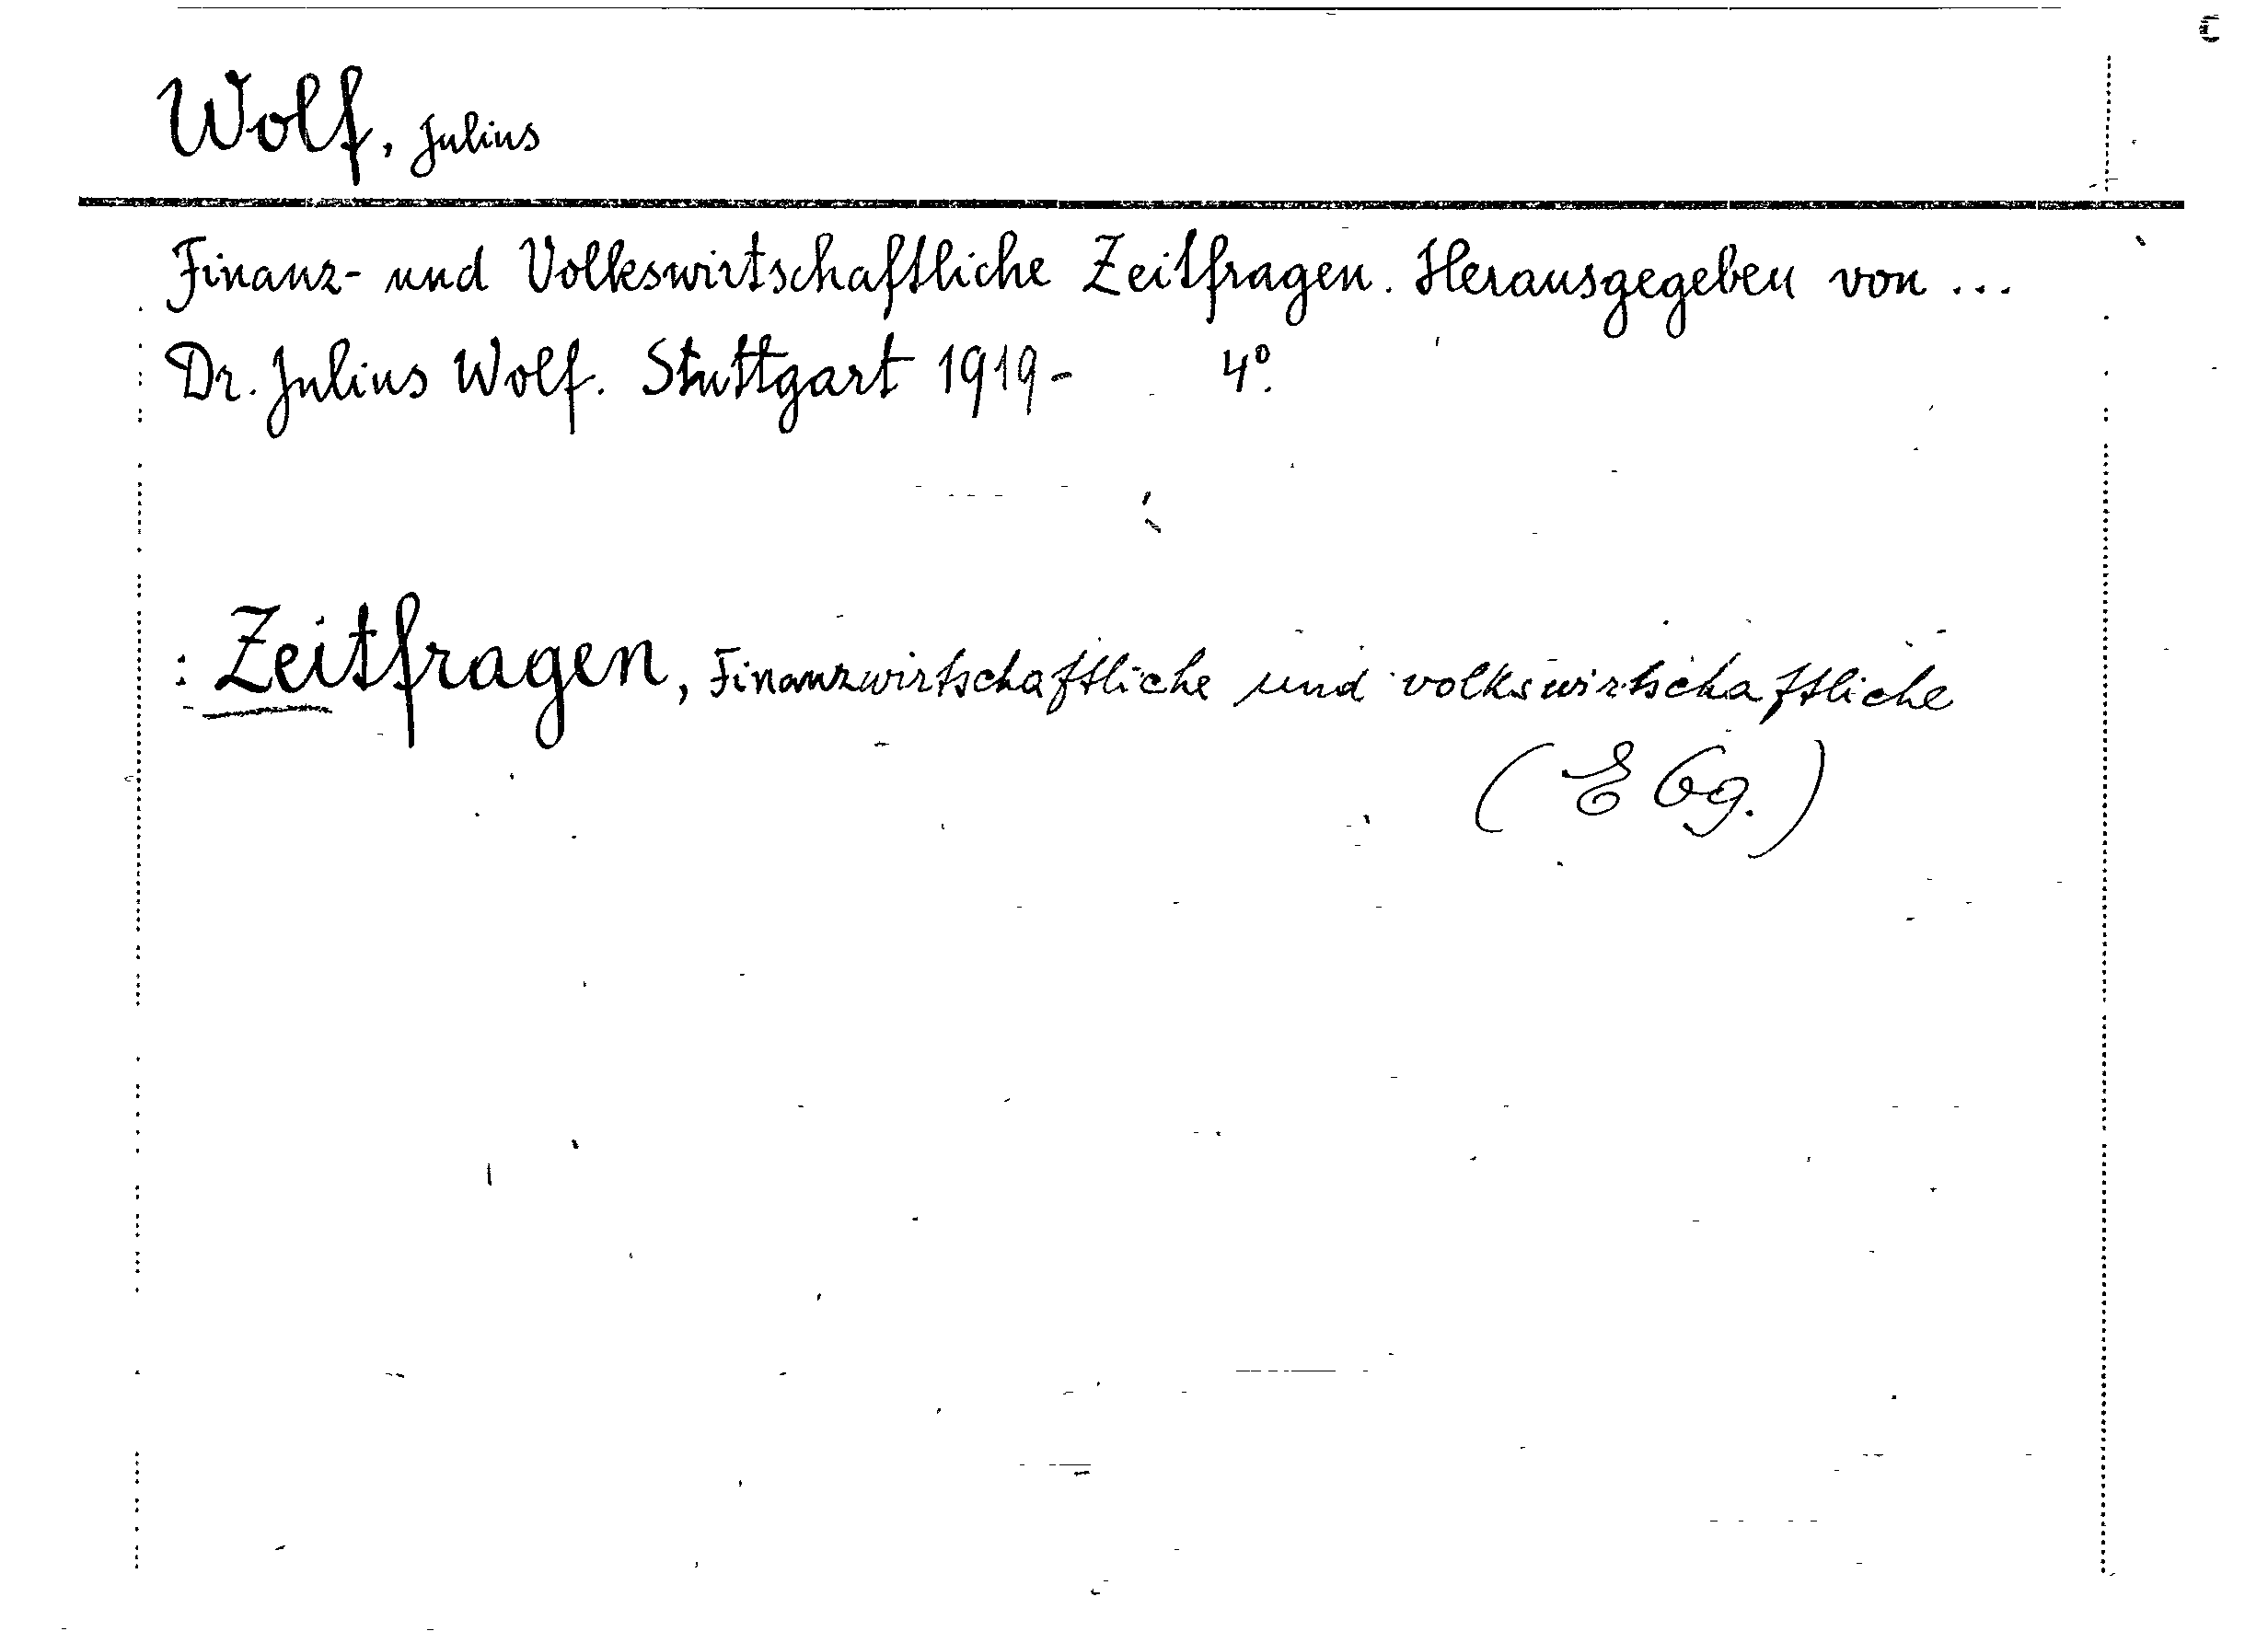 Wolf, Julius
Finanz- und Volkswirtschaftliche Zeitfragen. Herausgegeben von ...
Dr. Julius Wolf. Stuttgart 1919- 4º.
: Zeitfragen, Finanzwirtschaftliche und volkswirtschaftliche